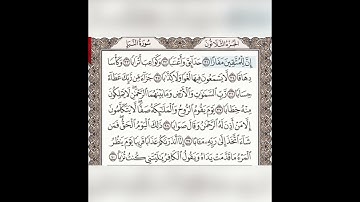 سُورَةُ النَّبَإِ
الجُزْءُ الثَّلَاثُونَ
إِنَّ لِلْمُتَّقِينَ مَفَازًا ٣١ حَدَائِقَ وَأَعْنَابًا ٣٢ وَكَوَاعِبَ أَتْرَابًا ٣٣ وَكَأْسًا
دِهَاقًا ٣٤ لَّا يَسْمَعُونَ فِيهَا لَغْوًا وَلَا كِذَّابًا ٣٥ جَزَاءً مِّن رَّبِّكَ عَطَاءً
حِسَابًا ٣٦ رَّبِّ السَّمَاوَاتِ وَالْأَرْضِ وَمَا بَيْنَهُمَا الرَّحْمَٰنِ لَا يَمْلِكُونَ
مِنْهُ خِطَابًا ٣٧ يَوْمَ يَقُومُ الرُّوحُ وَالْمَلَائِكَةُ صَفًّا لَّا يَتَكَلَّمُونَ
إِلَّا مَنْ أَذِنَ لَهُ الرَّحْمَٰنُ وَقَالَ صَوَابًا ٣٨ ذَٰلِكَ الْيَوْمُ الْحَقُّ فَمَن
شَاءَ اتَّخَذَ إِلَىٰ رَبِّهِ مَآبًا ٣٩ إِنَّا أَنذَرْنَاكُمْ عَذَابًا قَرِيبًا يَوْمَ يَنظُرُ
الْمَرْءُ مَا قَدَّمَتْ يَدَاهُ وَيَقُولُ الْكَافِرُ يَا لَيْتَنِي كُنتُ تُرَابًا ٤٠